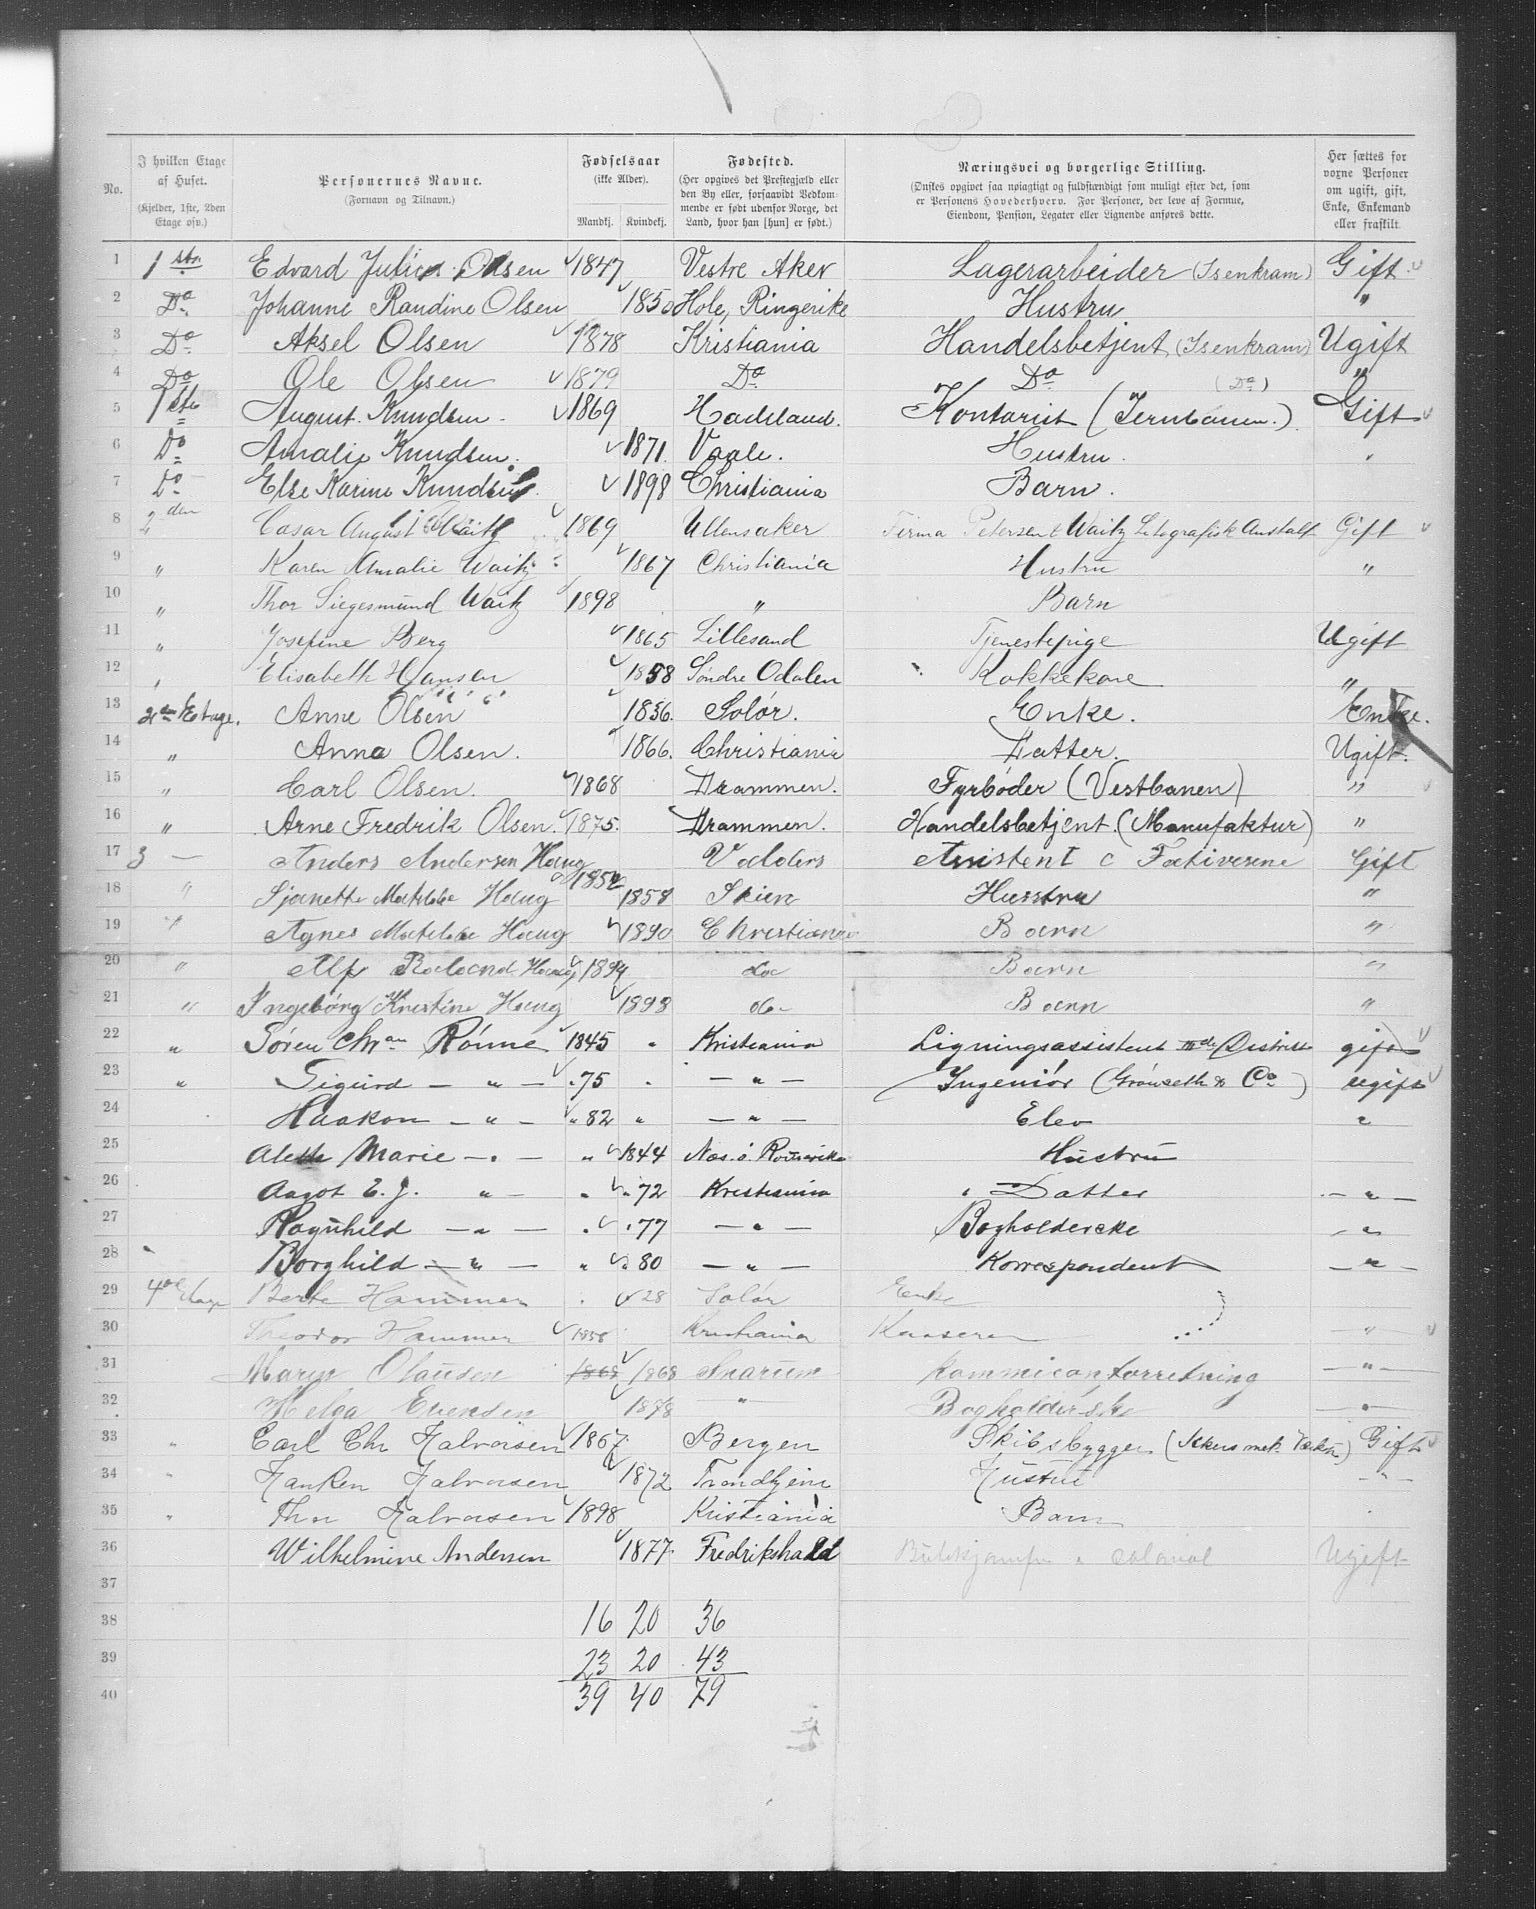 No. | I hvilken Etage af Huset. (Kjelder, 1ste, 2den Etage osv.) | Personernes Navne. (Fornavn og Tilnavn.) | Fødselsaar (ikke Alder). Mandkj. | Kvindekj. | Fødested. (Her opgives det Prestegjæld eller den By eller, forsaavidt Vedkommende er født udenfor Norge, det Land, hvor han [hun] er født.) | Næringsvei og borgerlige Stilling. (Ønskes opgivet saa nøiagtigt og fuldstændigt som muligt efter det, som er Personens Hovederhverv. For Personer, der leve af Formue, Eiendom, Pension, Legater eller Lignende anføres dette.) | Her sættes for voxne Personer om ugift, gift, Enke, Enkemand eller fraskilt.
1 1ste Edvard Julius Olsen 1847 Vestre Aker Lagerarbeider (Isenkram) Gift
2 Do Johanne Randine Olsen 1850 Hole, Ringerike Hustru "
3 Do Aksel Olsen 1878 Kristiania Handelsbetjent (Isenkram) Ugift
4 Do Ole Olsen 1879 Do Do (Do) "
5 1ste August Knudsen 1869 Hadeland. Kontorist (Jernbanen.) Gift
6 Do Amalie Knudsen. 1871. Vaale. Hustru. "
7 Do Else Karine Knudsen. 1898 Christiania Barn.
8 2den Cæsar August Waitz 1869 Ullensaker Firma Petersen & Waitz Litografisk Anstalt Gift
9 " Karen Amalie Waitz 1867 Christiania Hustru "
10 " Thor Siegesmund Waitz 1898 " Barn
11 " Josefine Berg 1865 Lillesand Tjenestepige Ugift
12 " Elisabeth Hansen 1858 Søndre Odalen Kokkekone "
13 2den Etage. Anne Olsen 1836. Solør. Enke. Enke.
14 " Anna Olsen. 1866. Christiania Datter. Ugift.
15 " Carl Olsen. 1868 Drammen. Fyrbøder (Vestbanen) "
16 " Arne Fredrik Olsen. 1875. Drammen. Handelsbetjent. (Manufaktur) "
17 3 — Anders Andersen Haug 1852 Valders Assistent Gift
18 " Sjanette Matilde Haug 1858 Skien Husstru "
19 " Agnes Matilde Haug 1890 Christiania Barn "
20 " Alf Haug 1894 do Barn "
21 " Ingebørg Kristine Haug 1898 do Barn "
22 " Søren Chran Rønne 1845 " Kristiania Ligningsassistent gift
23 " Sigurd — " — " 75 " — " — Ingeniør (Grønseth & Co) ugift
24 Haakon — " — " 82 " — " — Elev "
25 Marie — " — " 1844 Næs ø. Romerike Hustru
26 Aagot E. J. " — " " 72 Kristiania Datter — " —
27 Ragnhild — " — " " 77 — " — Bogholderske — " —
28 Borghild — " — " " 80 — " — Korrespondent — " —
29 4de Etage Berte Hammer 28 Solør Enke
30 Theodor Hammer 1858 Kristiania Kasserer "
31 Maryn Olausen 1868 1868 Snarum Kommisionsforretning — " —
32 Helga Evensen 1878 — " — Bogholderske — " —
33 " Carl Chr Halvorsen 1867 Bergen Skibsbygger (Akers mek. Værkst) Gift
34 " Halvorsen 1872 Trondhjem Hustru — " —
35 " Thor Halvorsen 1898 Kristiania Barn
36 Wilhelmine Andersen 1877 Fredrikshald colonial Ugift
37
38 16 20 36
39 23 20 43
40 39 40 79